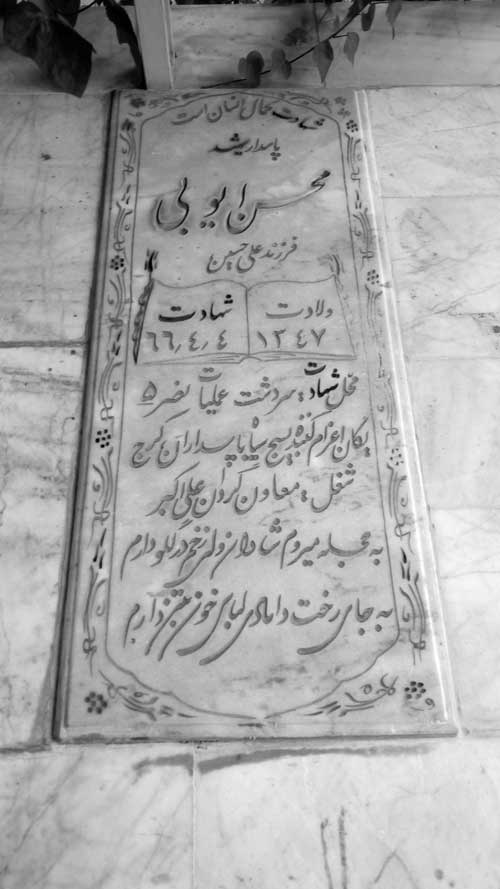 شهادت کمال انسان است
پاسدار شهید
محسن ایوبی
فرزند علی حسین
ولادت شهادت
۱۳٤۷ ٦٦٫٤٫٤
محل شهادت: سردشت عملیات نصر ۵
یکان اعزام کننده بسیج سپاه پاسداران کرج
شغل: معاون گردان علی اکبر
به حجله میروم شادان ولی زخم در گلو دارم
به جای رخت دامادی لباس خون به تن دارم